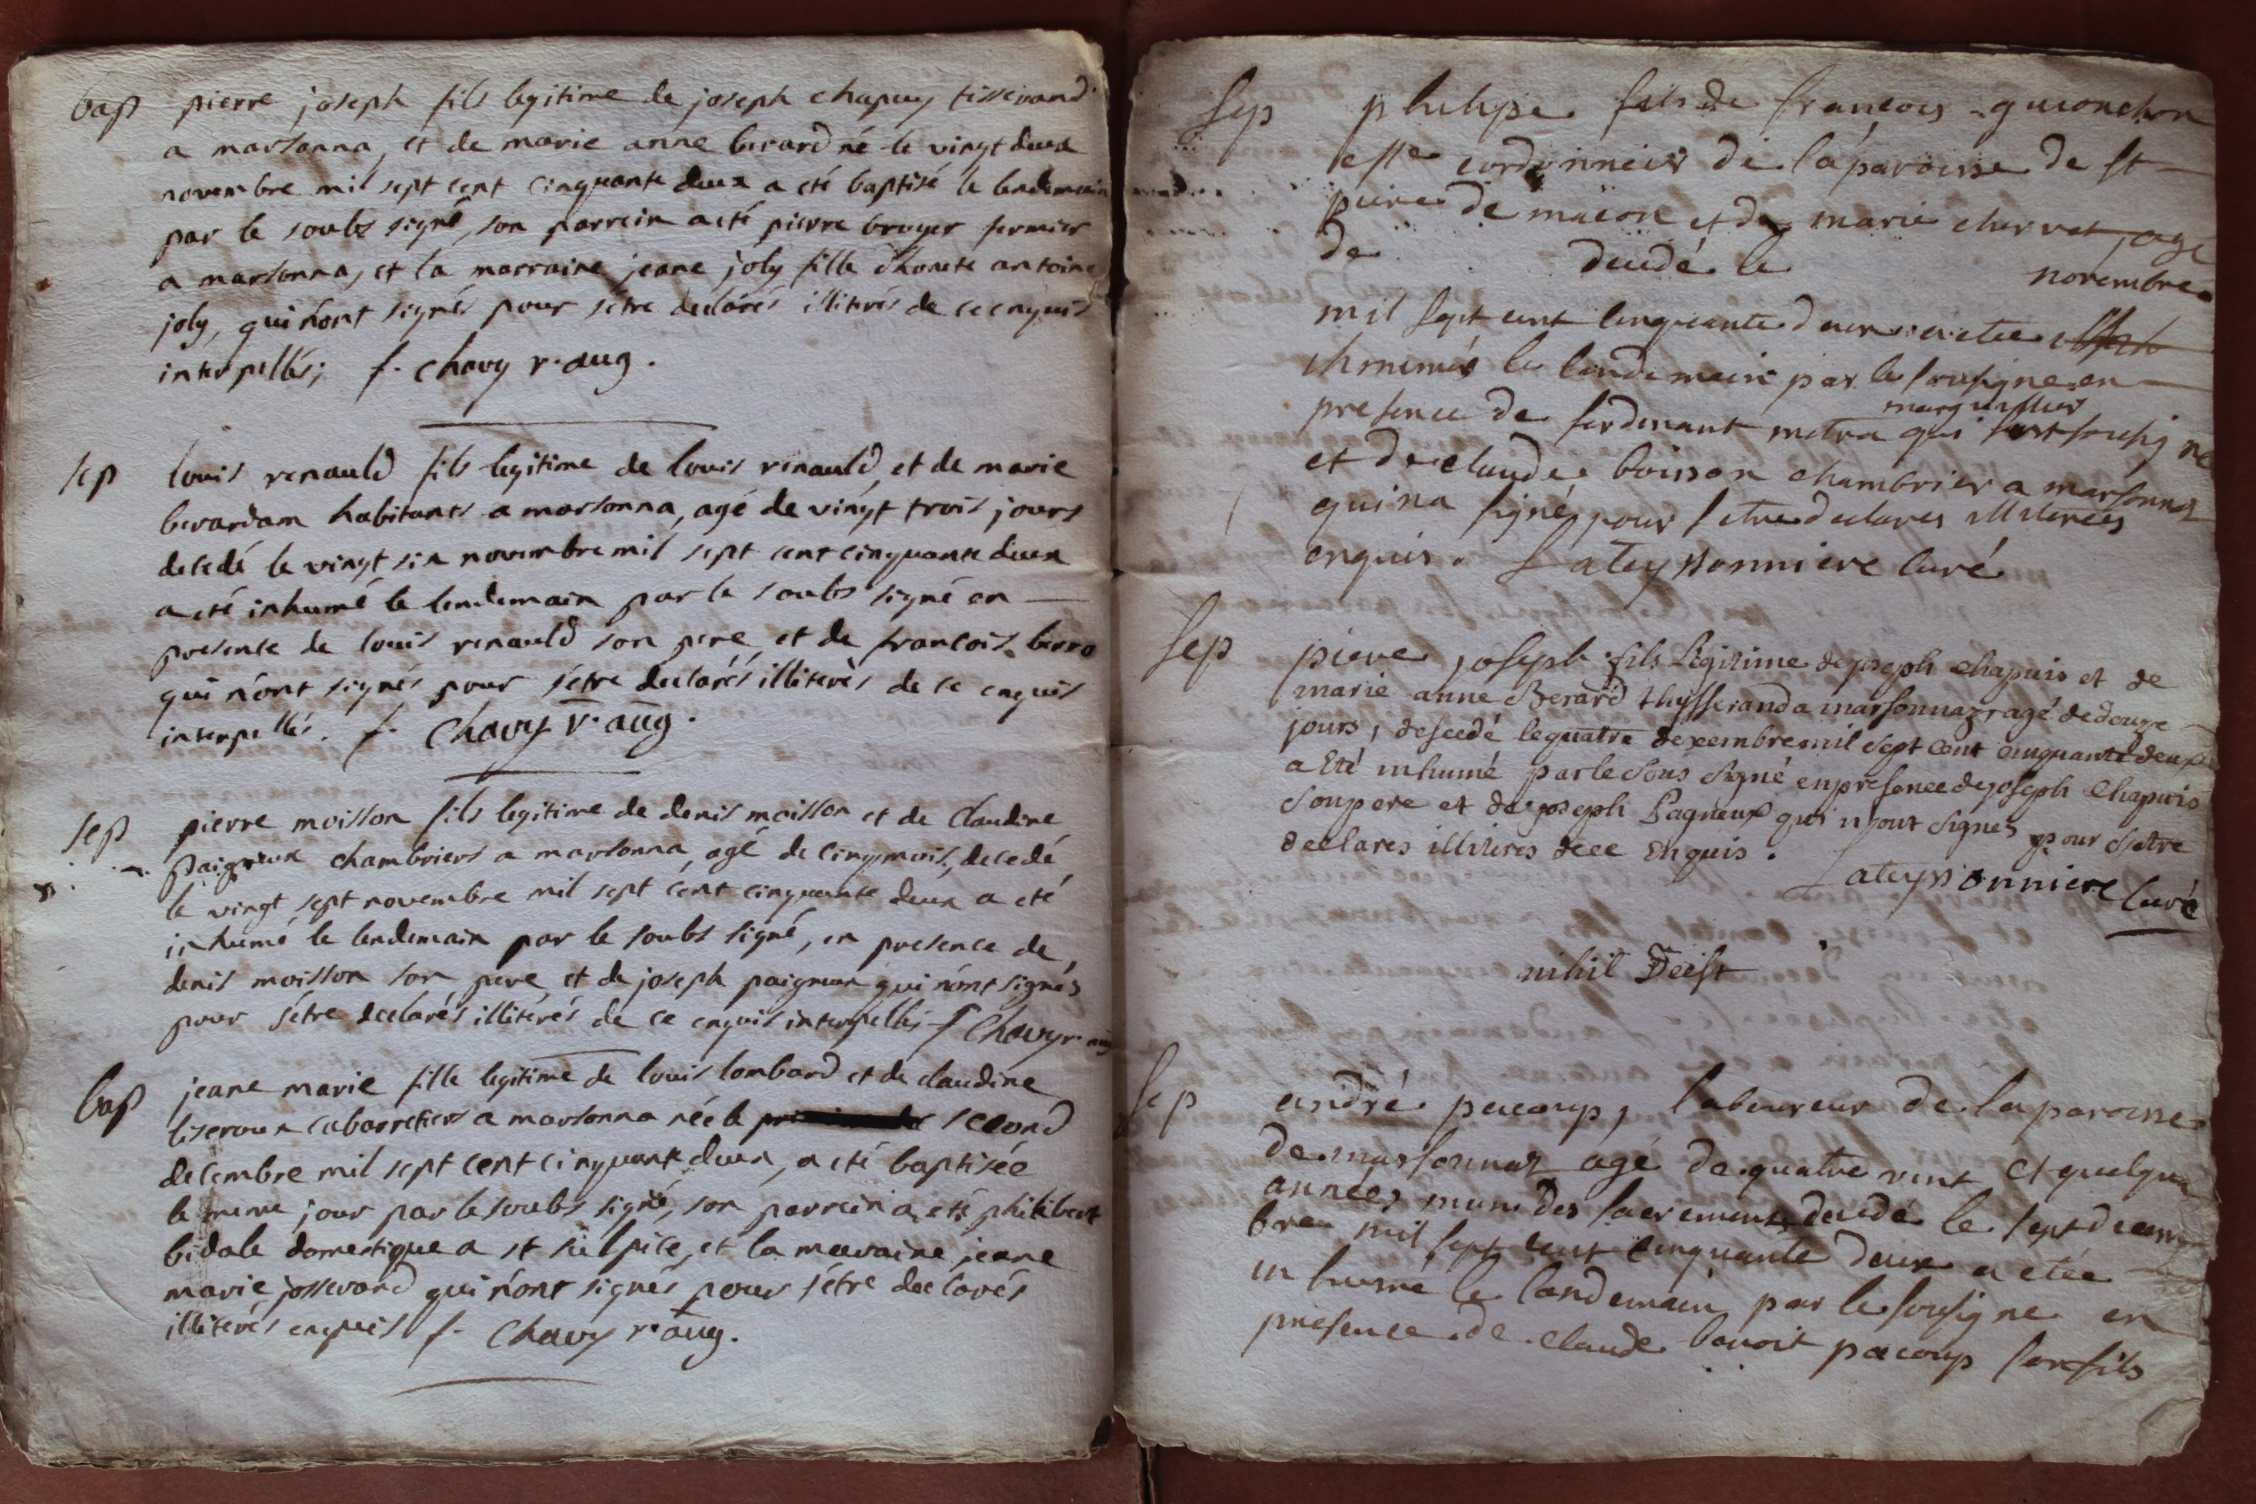 bap pierre joseph fils legitime de joseph chapuy tisserand
a marsonna, et de marie anne berard né le vingt deux
novembre mil sept cent cinquante deux a eté baptisé le lendemain
par le soubs signé, son parrein a eté pierre broyer fermier
a marsonna, et la marraine jeane joly fille d'honete antoine
joly, qui n'ont signés pour s'etre declarés illiterés de ce enquis
interpellés; f. chavy r. aug.
sep louis renauld fils legitime de louis renauld, et de marie
bevardam habitants a marsonna, agé de vingt trois jours
decedé le vingt six novembre mil sept cent cinquante deux
a eté inhumé le lendemain par le soubs signé en
presence de louis renauld son pere, et de francois berro
qui n'ont signés pour s'etre declarés illiterés de ce enquis
interpellés. f. Chavy r. aug.
sep pierre moisson fils legitime de denis moisson et de Claudine
paigneux chambriers a marsonna, agé de cinq mois, decedé
le vingt sept novembre mil sept cent cinquante deux a eté
inhumé le lendemain par le soubs signé, en presence de
denis moisson son pere, et de joseph paigneux qui n'ont signés
pour s'etre declarés illiterés de ce enquis interpellés f Chavy r. aug
bap jeane marie fille legitime de louis lombard et de claudine
liseroux cabarretiers a marsonna née le second
decembre mil sept cent cinquante deux, a eté baptisée
le meme jour par le soubs signé, son parrein a eté philibert
bidale domestique a st sulpice, et la maraine jeane
marie josserand qui n'ont signés pour s'etre declarés
illiterés enquis f. Chavy r. aug.
sep philipe fils de francois guionchon
cordonnier de la paroisse de st
piere de macon et de marie chervet, age
de decedé le novembre
mil sept cent cinquante deux a etee
inhumés le lendemain par le sousigne en
presence de ferdinant metra marguillier qui sousigne
et de claude boisson chambrier a marsonnaz
qui na signé pour setre declares illiterées
enquis. Lateyssonniere curé
sep pierre joseph fils légitime de joseph chapuis et de
marie anne Berard thysserand a marsonnaz agé de douze
jours, descedé le quatre dexembre mil sept cent cinquante deux
a Eté inhumé par le sous signé en presence de joseph Chapuis
son pere et de joseph Pagneux qui n'ont signes pour setre
declares illiteres de ce Enquis.
Lateyssonniere Curé
nihil Deest
sep andré pacoup, laboureur de la paroisse
de marsonnaz agé de quatre vint et quelque
années muni des sacrements decedé le sept decem
bre mil sept cent cinquante deux a etée
inhumé le landemain par le sousigne en
presence de claude benoit pacoup son fils